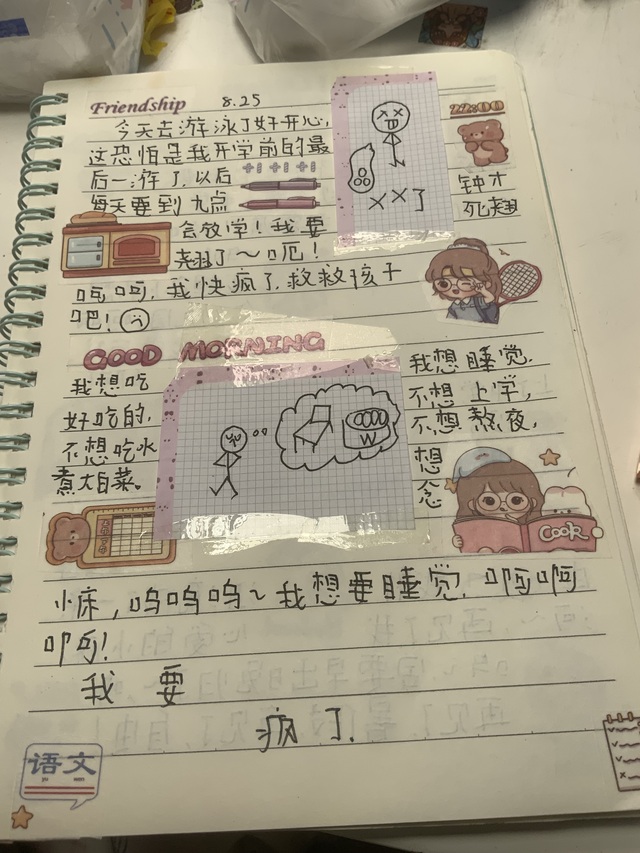 Friendship 8.25 22:00
今天去游泳了好开心,
这恐怕是我开学前的最
后一游了,以后
+1 +1 +1 +1
每天要到九点
钟才
死翘
会放学!我要
翘了~呃!
××了
呵呵,我快疯了,救救孩子
吧!
GOOD MORNING
我想吃
好吃的,
不想吃水
煮大白菜。
W
我想睡觉,
不想上学,
不想熬夜,
想
念
Cook
小床,呜呜呜~我想要睡觉,啊啊
啊!
我 要
疯了.
语文